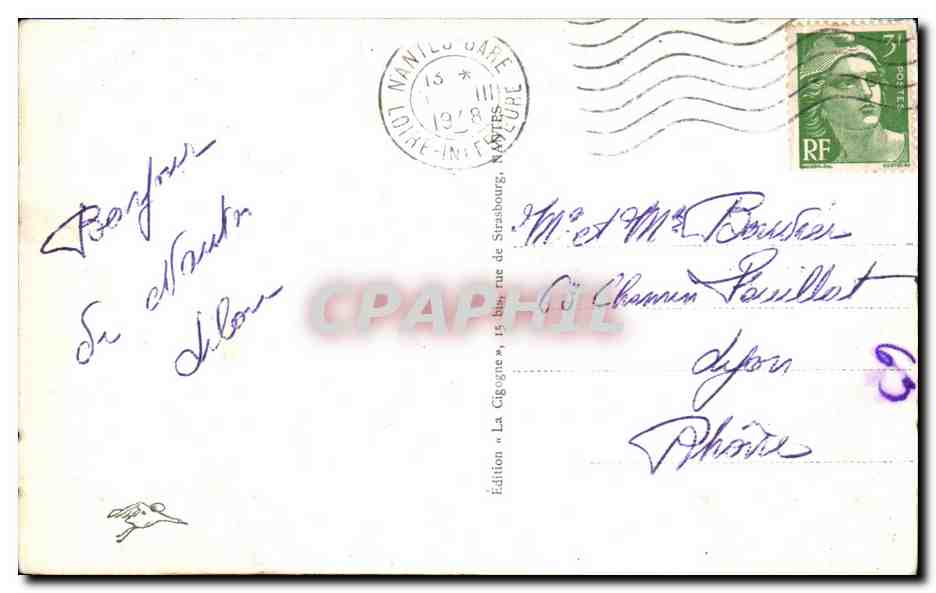 NANTES GARE
LOIRE-INFERIEURE
13 *
III
1948
3F
POSTES
RF
Bonjour
de Nantes
M. et Mme Boutier
60 Chemin Pouillat
Lyon
Rhône
63
Édition « La Cigogne », 15 bis, rue de Strasbourg, NANTES
CPAPHIL